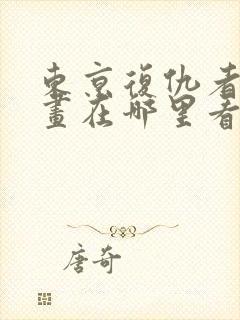 東京復仇者
畫在哪里看
唐奇